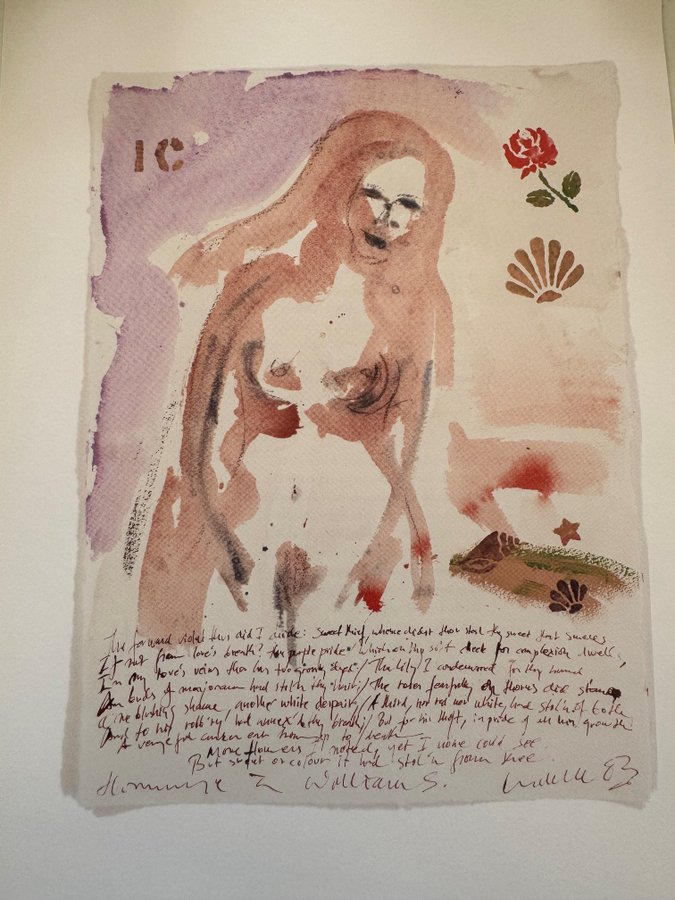 IC
The forward violet thus did I chide: Sweet thief, whence didst thou steal thy sweet that smells
If not from love's breath? The purple pride / which on thy soft cheek for complexion dwells,
In my love's veins thou hast too grossly dyed / The lily I condemned for thy hand
And buds of marjoram had stol'n thy hair; / The roses fearfully on thorns did stand
One blushing shame, another white despair; / A third, nor red nor white, had stol'n of both
And to his robb'ry had annex'd thy breath; / But for his theft, in pride of all his growth
A vengeful canker eat him up to death
More flowers I noted, yet I none could see
But sweet or colour it had stol'n from thee.
Hommage William S.